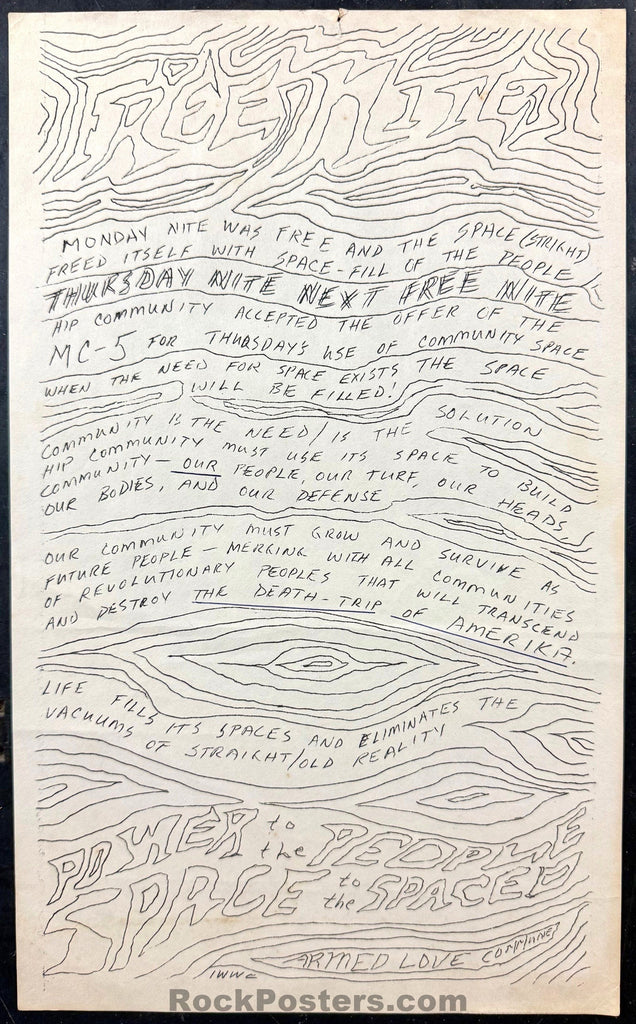 FREE NITE
MONDAY NITE WAS FREE AND THE SPACE (STRIGHT)
FREED ITSELF WITH SPACE-FILL OF THE PEOPLE
THURSDAY NITE NEXT FREE NITE
HIP COMMUNITY ACCEPTED THE OFFER OF THE
MC-5 FOR THURSDAY'S USE OF COMMUNITY SPACE
WHEN THE NEED FOR SPACE EXISTS THE SPACE
WILL BE FILLED!
COMMUNITY IS THE NEED/IS THE SOLUTION
HIP COMMUNITY MUST USE ITS SPACE TO BUILD
COMMUNITY — OUR PEOPLE, OUR TURF, OUR HEADS,
OUR BODIES, AND OUR DEFENSE
OUR COMMUNITY MUST GROW AND SURVIVE AS
FUTURE PEOPLE — MERGING WITH ALL COMMUNITIES
OF REVOLUTIONARY PEOPLES THAT WILL TRANSCEND
AND DESTROY THE DEATH-TRIP OF AMERIKA.
LIFE FILLS ITS SPACES AND ELIMINATES THE
VACUUMS OF STRAIGHT/OLD REALITY
POWER to the PEOPLE
SPACE to the SPACED
ARMED LOVE COMMUNE
IWWC
RockPosters.com